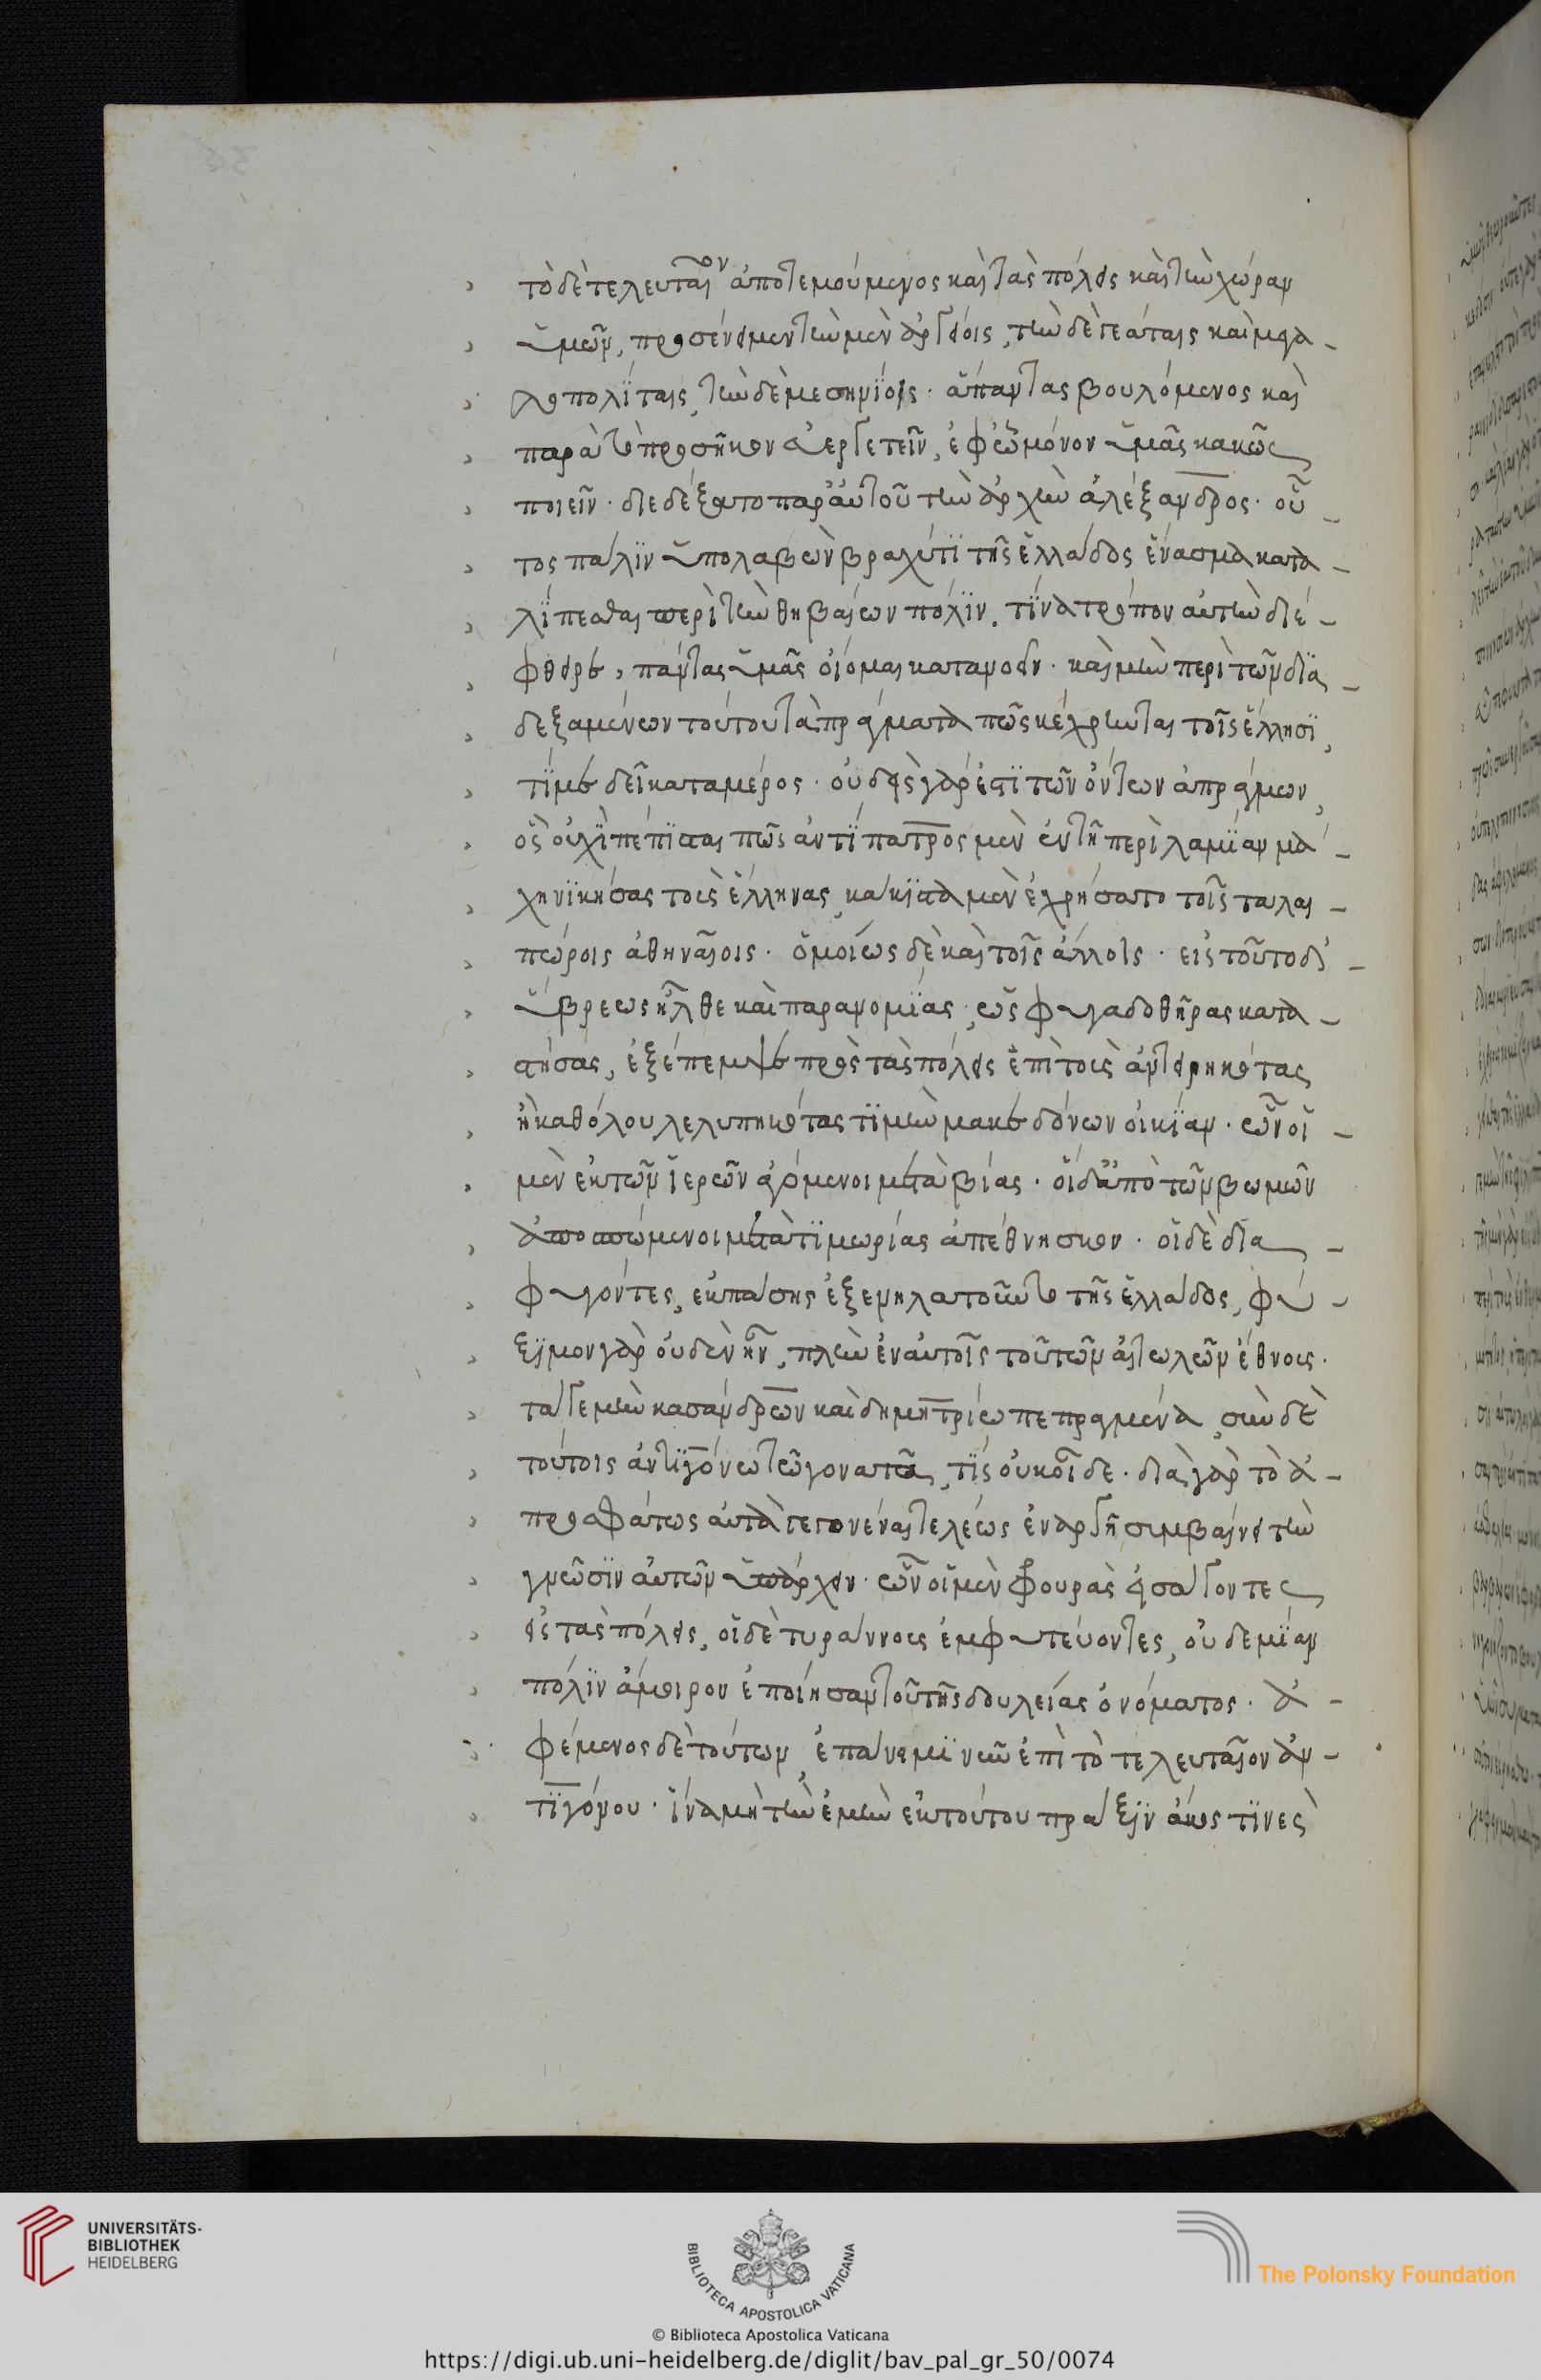 τὸ δὲ τελευταῖον ἀποτεμούμενος καὶ τὰς πόλεις καὶ τὴν χώραν
ὑμῶν, προσένειμεν τὴν μὲν ἀργείοις, τὴν δὲ τεγάταις καὶ μεγα-
λοπολίταις, τὴν δὲ μεσηνίοις. ἅπαντας βουλόμενος καὶ
παρὰ τὸ προσῆκον εὐεργετεῖν, ἐφ' ᾧ μόνον ὑμᾶς κακῶς
ποιεῖν. διεδέξατο παρ' αὐτοῦ τὴν ἀρχὴν ἀλέξανδρος. οὗ-
τος πάλιν ὑπολαβὼν βραχύ τι τῆς ἑλλάδος ἔνασμα κατα-
λίπεσθαι περὶ τὴν θηβαίων πόλιν. τίνα τρόπον αὐτὴν διέ-
φθειρε, πάντας ὑμᾶς οἴομαι κατανοεῖν. καὶ μὴν περὶ τῶν δια-
δεξαμένων τούτου τὰ πράγματα πῶς κέχρηνται τοῖς ἕλλησι,
τί με δεῖ κατα μέρος. οὐδεὶς γάρ ἐστι τῶν ὄντων ἀπράγμων,
ὃς οὐχὶ πέπισται πῶς ἀντίπατρος μὲν ἐν τῇ περὶ λαμίαν μά-
χῃ νικήσας τοὺς ἕλληνας, κάκιστα μὲν ἐχρήσατο τοῖς ταλαι-
πώροις ἀθηναίοις. ὁμοίως δὲ καὶ τοῖς ἄλλοις. εἰς τοῦτο δ'
ὕβρεως ἦλθε καὶ παρανομίας, ὡς φυγαδοθήρας κατα-
στήσας, ἐξέπεμψε πρὸς τὰς πόλεις ἐπὶ τοὺς ἀντειρηκότας
ἢ καθόλου λελυπηκότας τι μὴν μακεδόνων οἰκίαν. ὧν οἱ-
μὲν ἐκ τῶν ἱερῶν ἀγόμενοι μετὰ βίας. οἱ δ' ἀπὸ τῶν βωμῶν
ἀποσπώμενοι μετὰ τιμωρίας ἀπέθνησκον. οἱ δὲ δια-
φυγόντες, ἐκ πάσης ἐξενηλατοῦντο τῆς ἑλλάδος, φύ-
ξιμον γὰρ οὐδὲν ἦν, πλὴν ἐν αὐτοῖς τοῦ τῶν αἰτωλῶν ἔθνους.
τά γε μὴν κασάνδρων καὶ δημητρίω πεπραγμένα, σὺν δὲ
τούτοις ἀντιγόνω τῶ γονατᾶ, τίς οὐκ οἶδε. διὰ γὰρ τὸ
προσφάτως αὐτὰ γεγονέναι τελέως ἐναργῆ συμβαίνει τὴν
γνῶσιν αὐτῶν ὑπάρχειν. ὧν οἱ μὲν φρουρὰς εἰσάγοντες
εἰς τὰς πόλεις, οἱ δὲ τυράννους ἐμφυτεύοντες, οὐδεμίαν
πόλιν ἄμοιρον ἐποίησαν τοῦ τῆς δουλείας ὀνόματος. ἀ-
φέμενος δὲ τούτων, ἐπάνειμι νῦν ἐπὶ τὸ τελευταῖον ἀν-
τίγονον. ἵνα μὴ τὴν ἐμὴν ἐκ τούτου πρᾶξιν ἀκως τινὲς
UNIVERSITÄTS-
BIBLIOTHEK
HEIDELBERG
BIBLIOTECA APOSTOLICA VATICANA
The Polonsky Foundation
© Biblioteca Apostolica Vaticana
https://digi.ub.uni-heidelberg.de/diglit/bav_pal_gr_50/0074